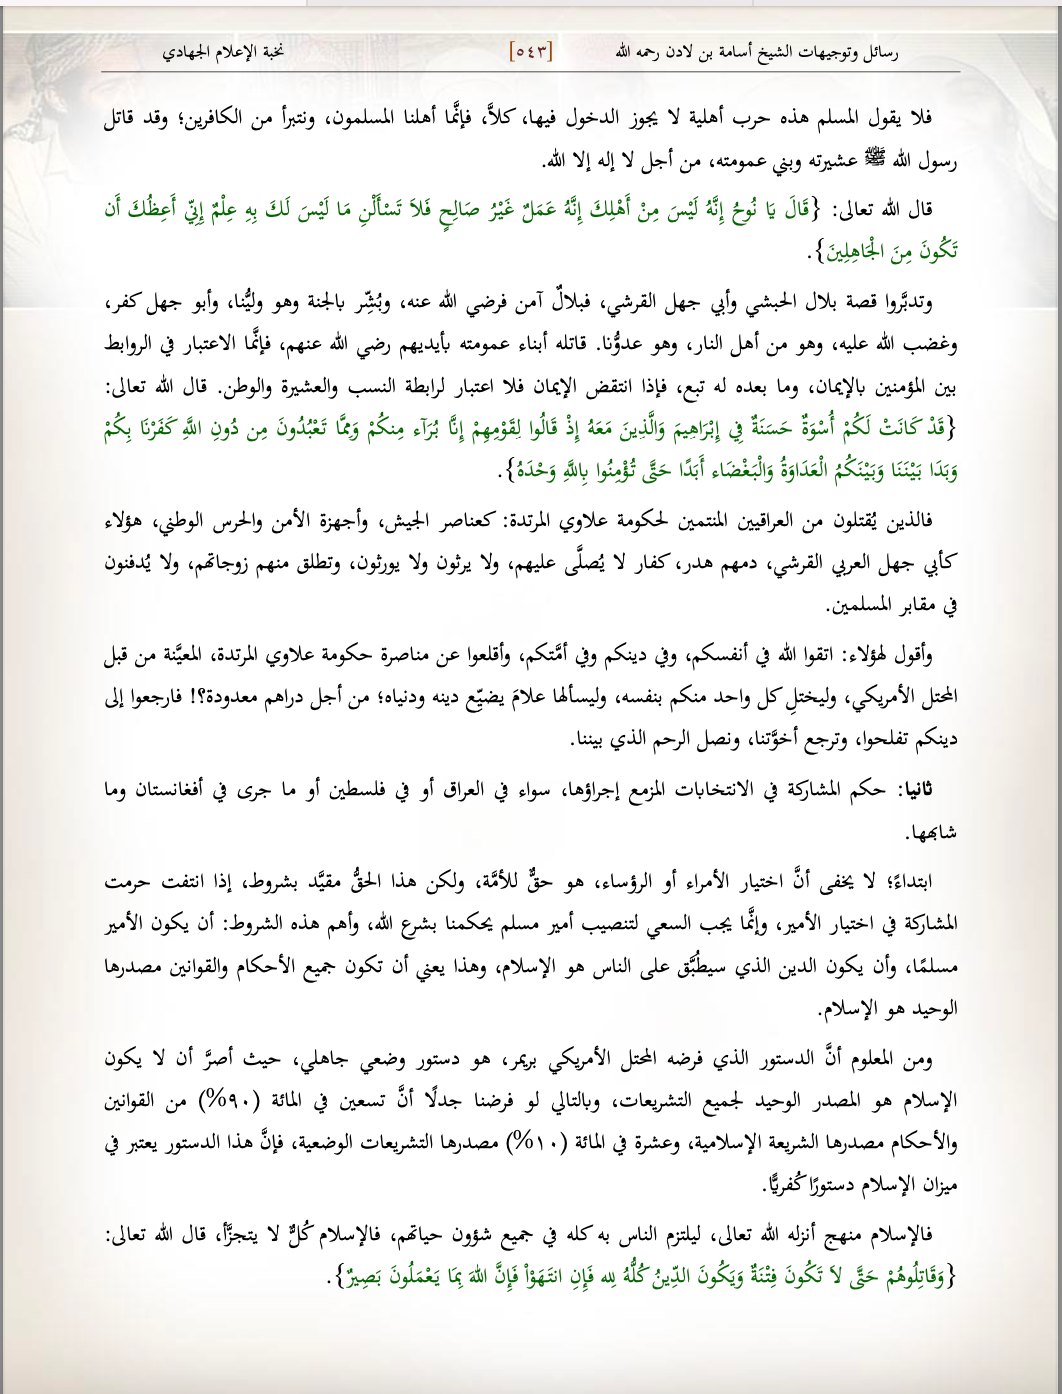 رسائل وتوجيهات الشيخ أسامة بن لادن رحمه الله [٥٤٣] نخبة الإعلام الجهادي
فلا يقول المسلم هذه حرب أهلية لا يجوز الدخول فيها، كلاَّ، فإنَّما أهلنا المسلمون، ونتبرأ من الكافرين؛ وقد قاتل
رسول الله ﷺ عشيرته وبني عمومته، من أجل لا إله إلا الله.
قال الله تعالى: {قَالَ يَا نُوحُ إِنَّهُ لَيْسَ مِنْ أَهْلِكَ إِنَّهُ عَمَلٌ غَيْرُ صَالِحٍ فَلاَ تَسْأَلْنِ مَا لَيْسَ لَكَ بِهِ عِلْمٌ إِنِّي أَعِظُكَ أَن
تَكُونَ مِنَ الْجَاهِلِينَ}.
وتدبَّروا قصة بلال الحبشي وأبي جهل القرشي، فبلالٌ آمن فرضي الله عنه، وبُشِّر بالجنة وهو وليُّنا، وأبو جهل كفر،
وغضب الله عليه، وهو من أهل النار، وهو عدوُّنا. قاتله أبناء عمومته بأيديهم رضي الله عنهم، فإنَّما الاعتبار في الروابط
بين المؤمنين بالإيمان، وما بعده له تبع، فإذا انتقض الإيمان فلا اعتبار لرابطة النسب والعشيرة والوطن. قال الله تعالى:
{قَدْ كَانَتْ لَكُمْ أُسْوَةٌ حَسَنَةٌ فِي إِبْرَاهِيمَ وَالَّذِينَ مَعَهُ إِذْ قَالُوا لِقَوْمِهِمْ إِنَّا بُرَآء مِنكُمْ وَمِمَّا تَعْبُدُونَ مِن دُونِ اللَّهِ كَفَرْنَا بِكُمْ
وَبَدَا بَيْنَنَا وَبَيْنَكُمُ الْعَدَاوَةُ وَالْبَغْضَاء أَبَدًا حَتَّى تُؤْمِنُوا بِاللَّهِ وَحْدَهُ}.
فالذين يُقتلون من العراقيين المنتمين لحكومة علاوي المرتدة: كعناصر الجيش، وأجهزة الأمن والحرس الوطني، هؤلاء
كأبي جهل العربي القرشي، دمهم هدر، كفار لا يُصلَّى عليهم، ولا يرثون ولا يورثون، وتطلق منهم زوجاتهم، ولا يُدفنون
في مقابر المسلمين.
وأقول لهؤلاء: اتقوا الله في أنفسكم، وفي دينكم وفي أمَّتكم، وأقلعوا عن مناصرة حكومة علاوي المرتدة، المعيَّنة من قبل
المحتل الأمريكي، وليختلِ كل واحد منكم بنفسه، وليسألها علامَ يضيّع دينه ودنياه؛ من أجل دراهم معدودة؟! فارجعوا إلى
دينكم تفلحوا، وترجع أخوَّتنا، ونصل الرحم الذي بيننا.
ثانيا: حكم المشاركة في الانتخابات المزمع إجراؤها، سواء في العراق أو في فلسطين أو ما جرى في أفغانستان وما
شابهها.
ابتداءً؛ لا يخفى أنَّ اختيار الأمراء أو الرؤساء، هو حقٌّ للأمَّة، ولكن هذا الحقُّ مقيَّد بشروط، إذا انتفت حرمت
المشاركة في اختيار الأمير، وإنَّما يجب السعي لتنصيب أمير مسلم يحكمنا بشرع الله، وأهم هذه الشروط: أن يكون الأمير
مسلمًا، وأن يكون الدين الذي سيطُبَّق على الناس هو الإسلام، وهذا يعني أن تكون جميع الأحكام والقوانين مصدرها
الوحيد هو الإسلام.
ومن المعلوم أنَّ الدستور الذي فرضه المحتل الأمريكي بريمر، هو دستور وضعي جاهلي، حيث أصرَّ أن لا يكون
الإسلام هو المصدر الوحيد لجميع التشريعات، وبالتالي لو فرضنا جدلًا أنَّ تسعين في المائة (٩٠%) من القوانين
والأحكام مصدرها الشريعة الإسلامية، وعشرة في المائة (١٠%) مصدرها التشريعات الوضعية، فإنَّ هذا الدستور يعتبر في
ميزان الإسلام دستورًا كُفريًّا.
فالإسلام منهج أنزله الله تعالى، ليلتزم الناس به كله في جميع شؤون حياتهم، فالإسلام كُلٌّ لا يتجزَّأ، قال الله تعالى:
{وَقَاتِلُوهُمْ حَتَّى لاَ تَكُونَ فِتْنَةٌ وَيَكُونَ الدِّينُ كُلُّهُ لِله فَإِنِ انتَهَوْاْ فَإِنَّ اللهَ بِمَا يَعْمَلُونَ بَصِيرٌ}.